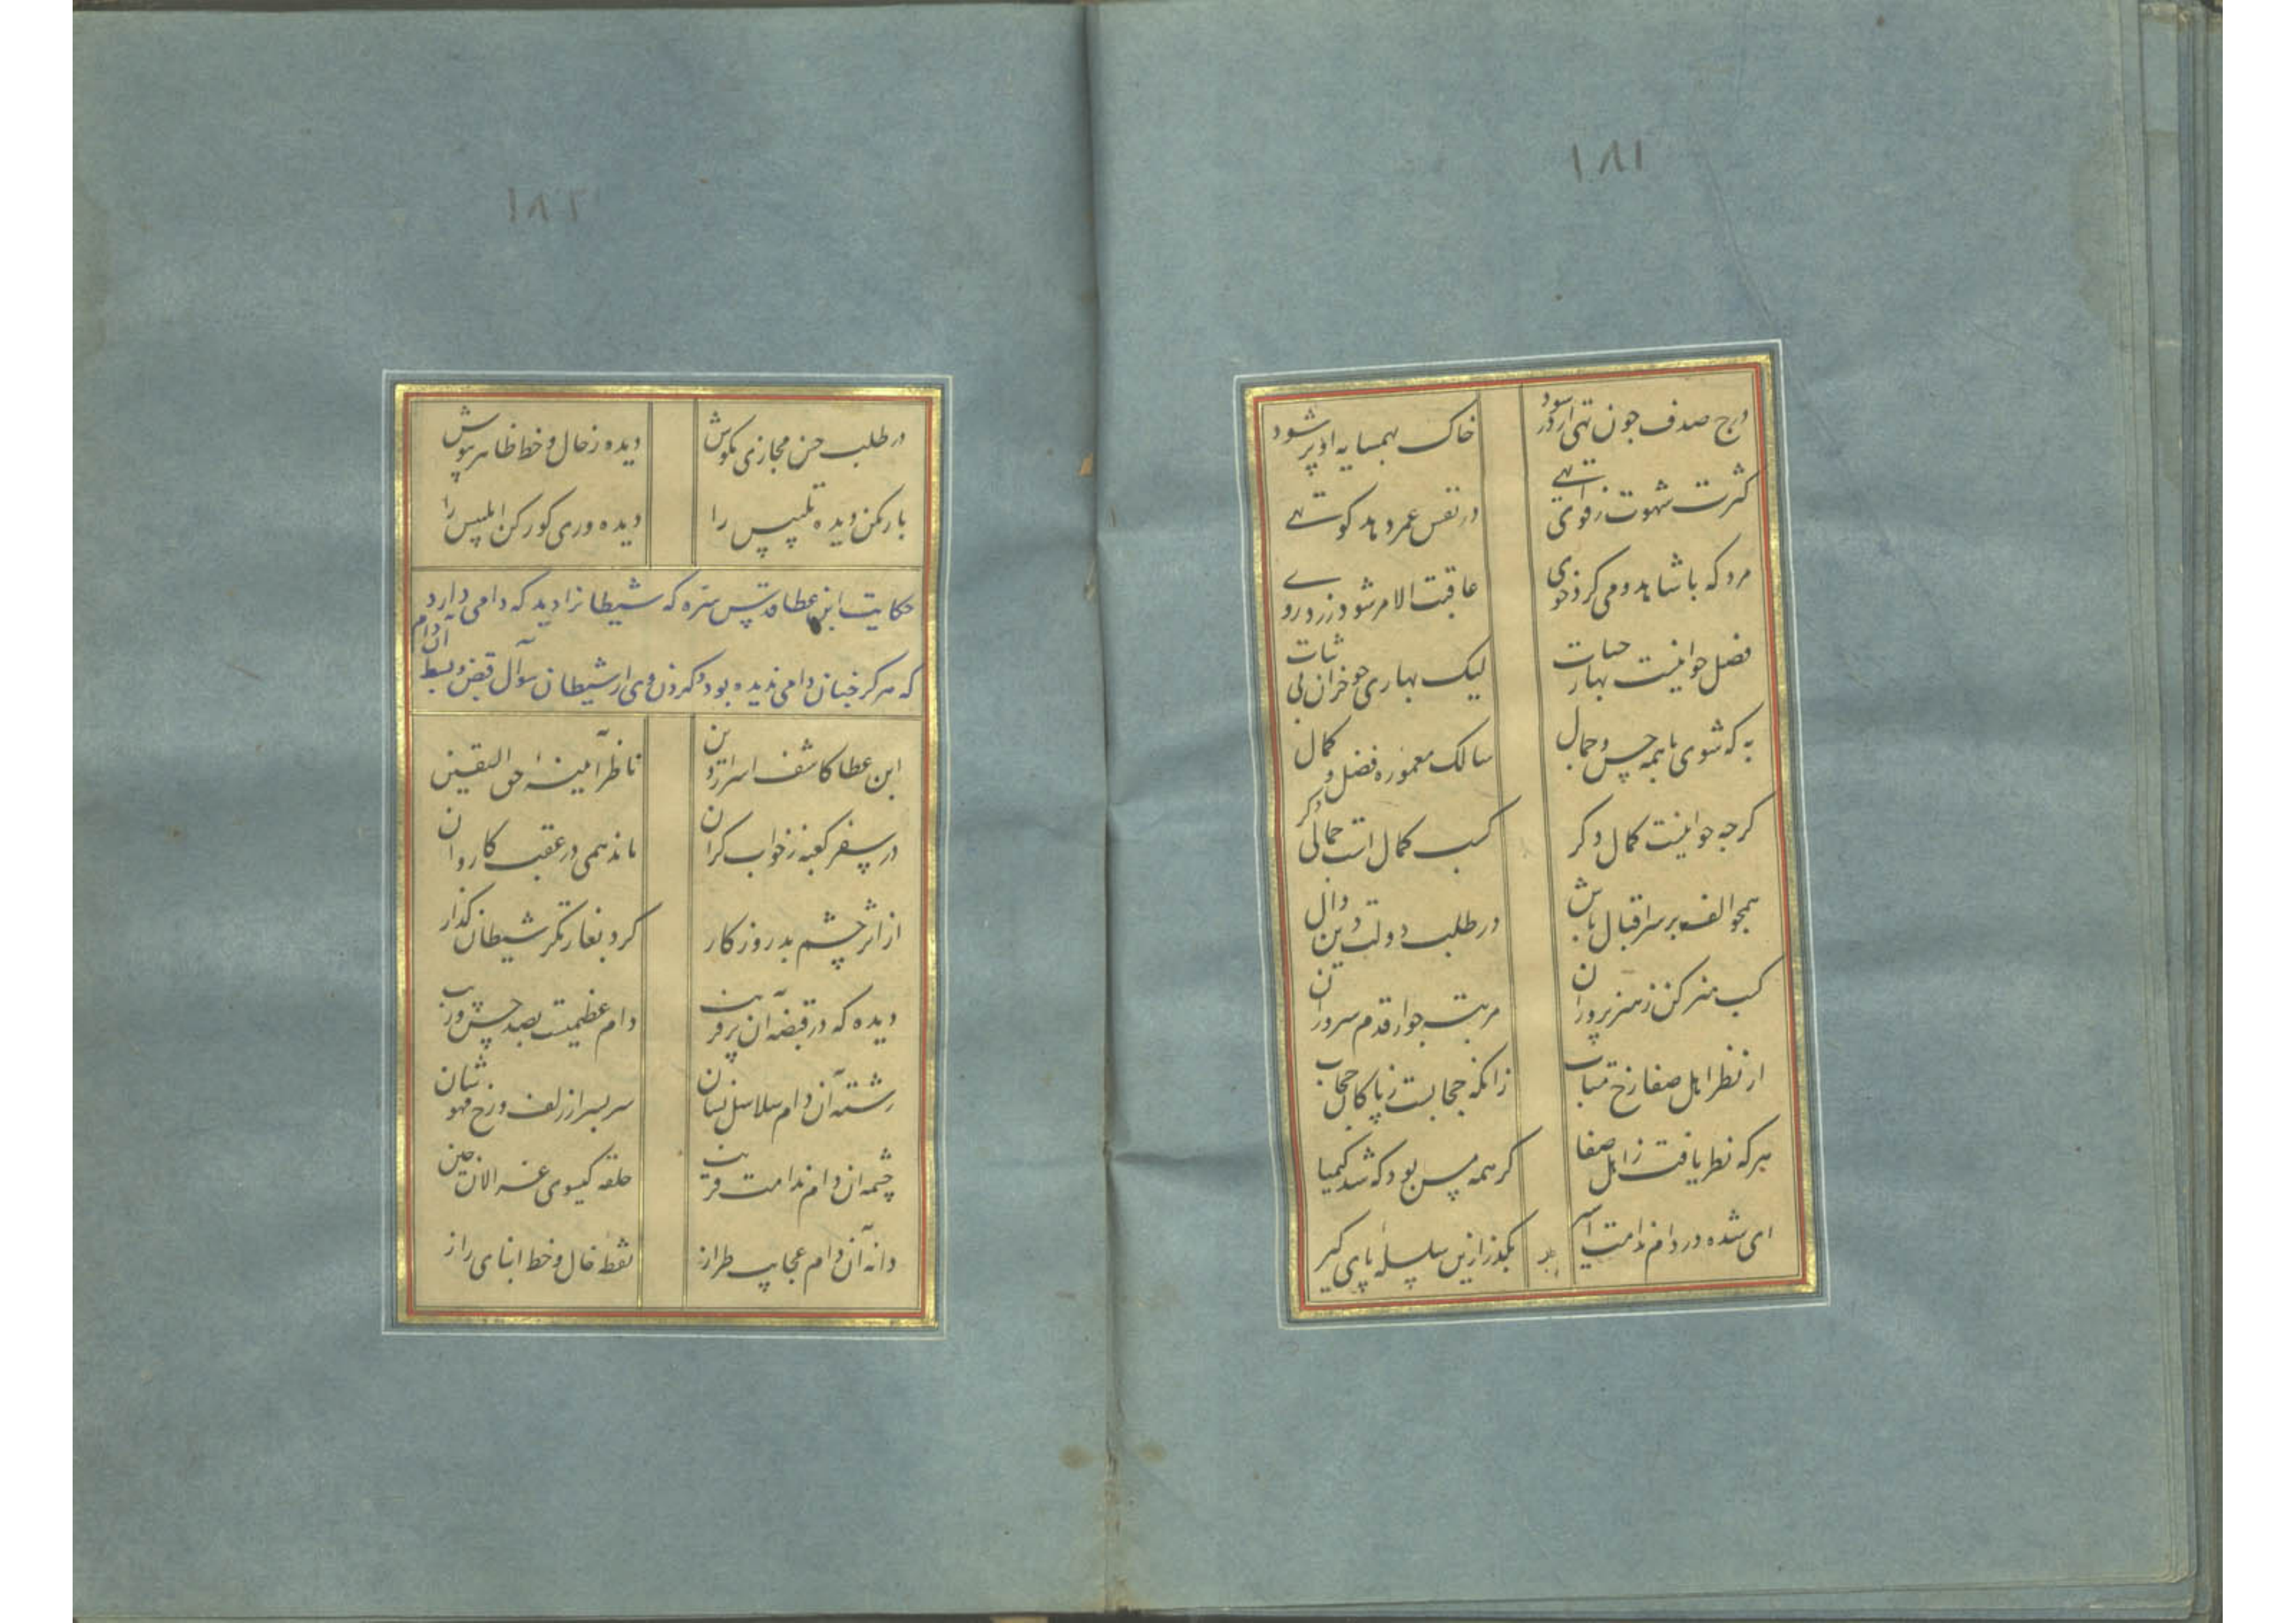 ۱۸۱
درج صدف چون تهی از در شود خاک بهمسایه او پر شود
کثرت شهوت ز قوای تهی در نفس عمر دهد کوتهی
مرد که با شاهد و می کرد خوی عاقبت الامر شود زرد روی
فضل جوانیست بهار حیات لیک بهاری چو خزان بی ثبات
به که شوی با همه حسن و جمال سالک معموره فضل و کمال
کرچه جوانیست کمال دکر کسب کمال است جمالی دکر
همچو الف بر سر اقبال باش در طلب دولت دین دال
کسب هنر کن ز هنرپروران مرتبت جو از قدم سروران
از نظر اهل صفا رخ متاب زانکه حجابست ز پاکان حجاب
هرکه نظر یافت ز اهل صفا کر همه مس بود که شد کیمیا
ای شده در دام ندامت اسیر بکذر ازین سلسله پای کیر
۱۸۲
در طلب حسن مجازی مکوش دیده ز خال و خط ظاهر بپوش
باز مکن دیده تلبیس را دیده وری کور کن ابلیس را
حکایت ابن عطا قدس سره که شیطانرا دید که دامی دارد
که هرکز چنان دامی ندیده بود و کردن وی از شیطان سوآل قبض و بسط آن دام
ابن عطا کاشف اسرار دین ناظر آیینهٔ حق الیقین
در سفر کعبه ز خواب کران ماند همی در عقب کاروان
از اثر چشم بد روزکار کرد بغارتکر شیطان کذار
دیده که در قبضه آن پر فریب دام عظیمست بصد حسن و زیب
رشته آن دام سلاسل نشان سر بسر از زلف و رخ مهوشان
چشمه آن دام ندامت قرین حلقه کیسوی غزالان چین
دانه آن دام عجایب طراز نقطه خال و خط ابنای راز